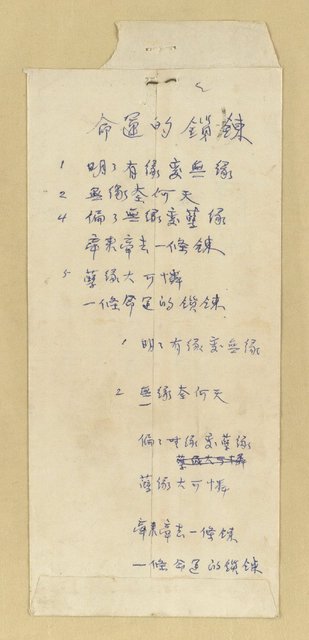 2
命運的鎖鍊
1 明々有緣變無緣
2 無緣奈何天
4 偏々無緣變孽緣
牽來牽去一條鍊
5 孽緣大可憐
一條命運的鎖鍊
1 明々有緣變無緣
2 無緣奈何天
偏々無緣變孽緣
孽緣大可憐
孽緣大可憐
牽來牽去一條鍊
一條命運的鎖鍊